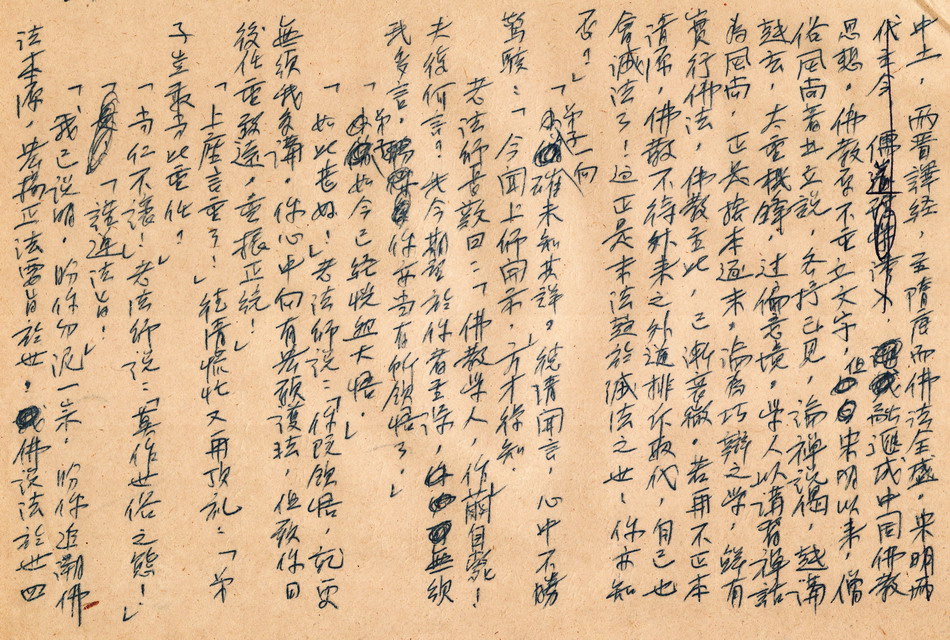 中土，兩晉譯經，至隋唐而佛法全盛，宋明兩
代至今 佛 ，融滙成中国佛教
思想。佛教原不重立文字，但宋明以来，僧
俗同尚著书立說，各抒己見，論禪說偈，越講
越玄，大重機鋒，过偏意境。學人以講習禪話
為同尚，正是捨本逐末。淪為巧辯之学，鮮有
實行佛法，佛教至此，已漸菩微。若再不正本
清源，佛教不待外来之外道排斥取代，自己也
會滅法了！這正是末法發於滅法之世！你亦知
否？」
「弟子一向確未知其詳。」德清聞言，心中不勝
驚駭：「今聞上師開示，方才得知。」
老法師長歎曰：「佛教學人，作繭自斃！
夫復何言？我今期望於你者至深，無須
我多言，你亦当有所領悟了。」
「弟子如今已経恍然大悟。」
「如此甚好！」老法師說：「你既領悟，就更
無須我多講，你心中向有發願護法，但願你日
後任重致遠，重振正統！」
「上座言重了！」德清慌忙又再頂礼：「弟
子豈敢当此重任？」
「当仁不讓！」老法師說：「莫作世俗之態！」
「謹遵法旨！」
「我已說明，盼你勿泥一宗，盼你追溯佛
法本源，发揚正法要旨於世。佛說法於世四